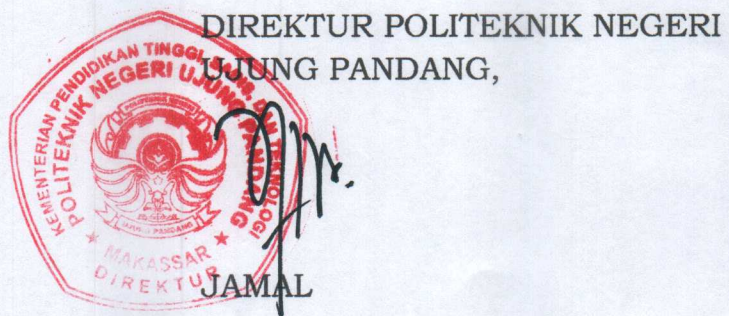 DIREKTUR POLITEKNIK NEGERI
UJUNG PANDANG,
KEMENTERIAN PENDIDIKAN TINGGI, SAINS, DAN TEKNOLOGI
POLITEKNIK NEGERI UJUNG PANDANG
MAKASSAR
DIREKTUR
JAMAL